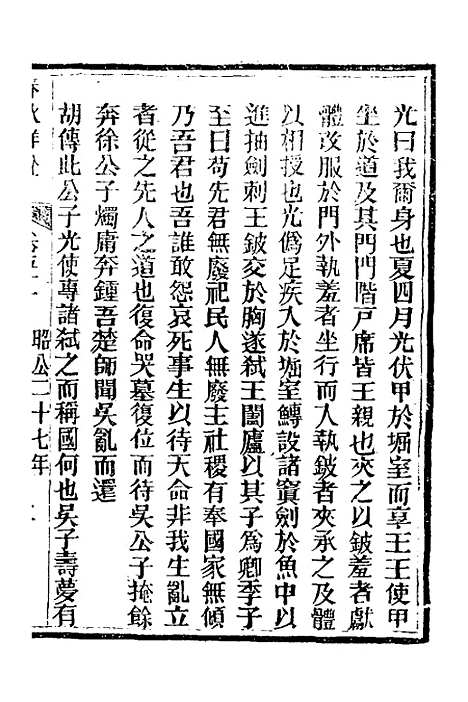 光曰我爾身也夏四月光伏甲於堀室而享王王使甲
坐於道及其門門階戸席皆王親也夾之以鈹羞者獻
體改服於門外執羞者坐行而入執鈹者夾承之及體
以相授也光僞足疾入於堀室鱄設諸寘劍於魚中以
進抽劍刺王鈹交於胸遂弒王闔廬以其子爲卿季子
至曰苟先君無廢祀民人無廢主社稷有奉國家無傾
乃吾君也吾誰敢怨哀死事生以待天命非我生亂立
者從之先人之道也復命哭墓復位而待吳公子掩餘
奔徐公子燭庸奔鍾吾楚師聞吳亂而還
胡傳此公子光使專諸弒之而稱國何也吳子壽夢有
昭公二十七年